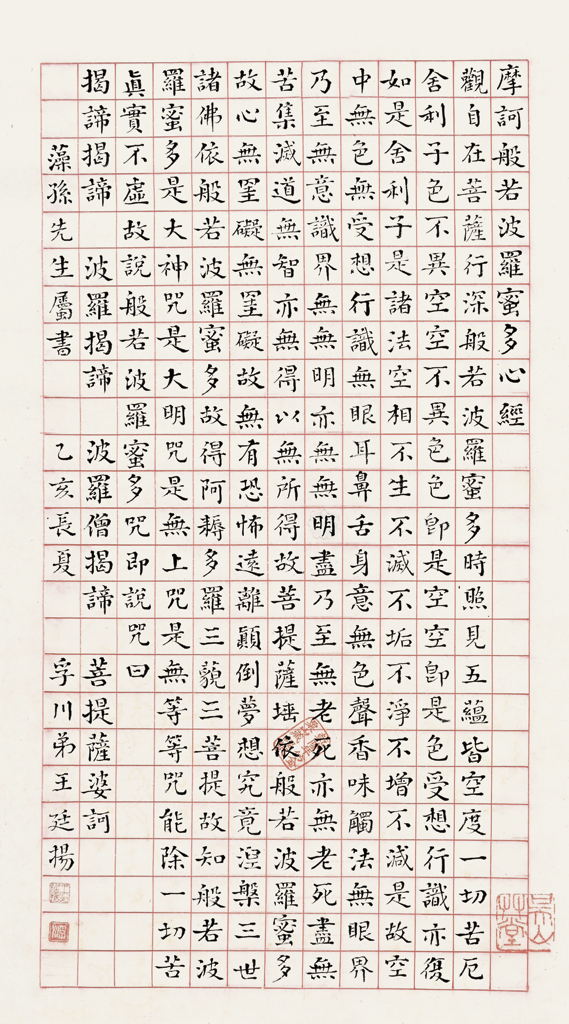 摩訶般若波羅蜜多心經
觀自在菩薩行深般若波羅蜜多時照見五蘊皆空度一切苦厄
舍利子色不異空空不異色色卽是空空卽是色受想行識亦復
如是舍利子是諸法空相不生不滅不垢不淨不增不減是故空
中無色無受想行識無眼耳鼻舌身意無色聲香味觸法無眼界
乃至無意識界無無明亦無無明盡乃至無老死亦無老死盡無
苦集滅道無智亦無得以無所得故菩提薩埵依般若波羅蜜多
故心無罣礙無罣礙故無有恐怖遠離顚倒夢想究竟涅槃三世
諸佛依般若波羅蜜多故得阿耨多羅三藐三菩提故知般若波
羅蜜多是大神咒是大明咒是無上咒是無等等咒能除一切苦
眞實不虛故說般若波羅蜜多咒即說咒曰
揭諦揭諦 波羅揭諦 波羅僧揭諦 菩提薩婆訶
藻孫先生屬書 乙亥長夏 孚川弟王廷揚